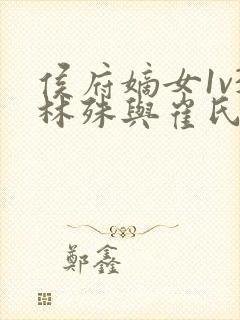 侯府嫡女1v
林殊與崔氏
鄭鑫